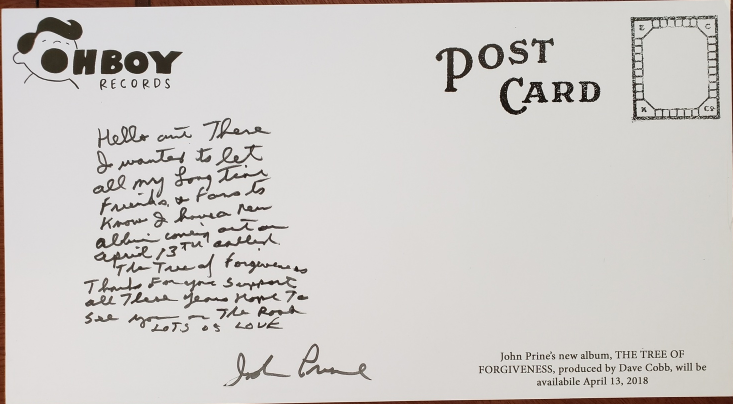 OH BOY
RECORDS
POST
CARD
E C
K Co
Hello out There
I wanted to let
all my Long time
Friends & Fans to
Know I have a new
album coming out on
april 13TH called
The Tree of Forgiveness
Thanks For your Support
all These years Hope To
See you on The Road
LOTS OF LOVE
John Prine
John Prine's new album, THE TREE OF
FORGIVENESS, produced by Dave Cobb, will be
availabile April 13, 2018